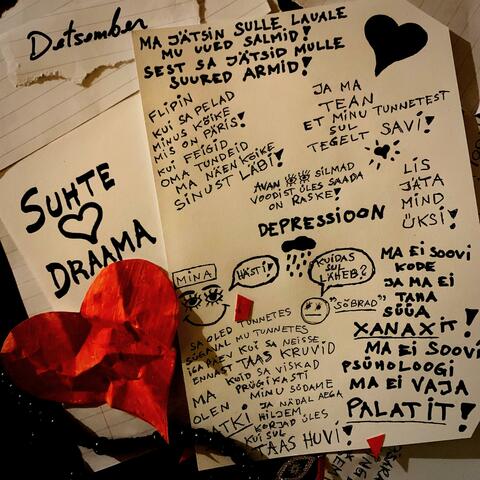 Detsember
MA JÄTSIN SULLE LAUALE
MU UUED SALMID!
SEST SA JÄTSID MULLE
SUURED ARMID!
FLIPIN
KUI SA PELAD
MINUS KÕIKE
MIS ON PÄRIS!
KUI FEIGID
OMA TUNDEID
MA NÄEN KÕIKE
SINUST LÄBI!
JA MA
TEAN
ET MINU TUNNETEST
SUL
TEGELT SAVI!
AVAN SILMAD
VOODIST ÜLES SAADA
ON RASKE!
LIS
JÄTA
MIND
ÜKSI!
SUHTE
DRAAMA
DEPRESSIOON
MINA
HÄSTI!
KUIDAS
SUL
LÄHEB?
"SÕBRAD"
MA EI SOOVI
KODE
JA MA EI
TAHA
SÜÜA
XANAXIT!
MA EI SOOVI
PSÜHOLOOGI
MA EI VAJA
PALATIT!
SA OLED TUNNETES
SÜGAVAL MU TUNNETES
IGA PÄEV KUI SA NEISSE
ENNAST TAAS KRUVID
KUID SA VISKAD
PRÜGIKASTI
MA MINU SÜDAME
OLEN JA NÄDAL AEGA
KATKI! HILJEM
KORJAD ÜLES
KUI SUL
TAAS HUVI!